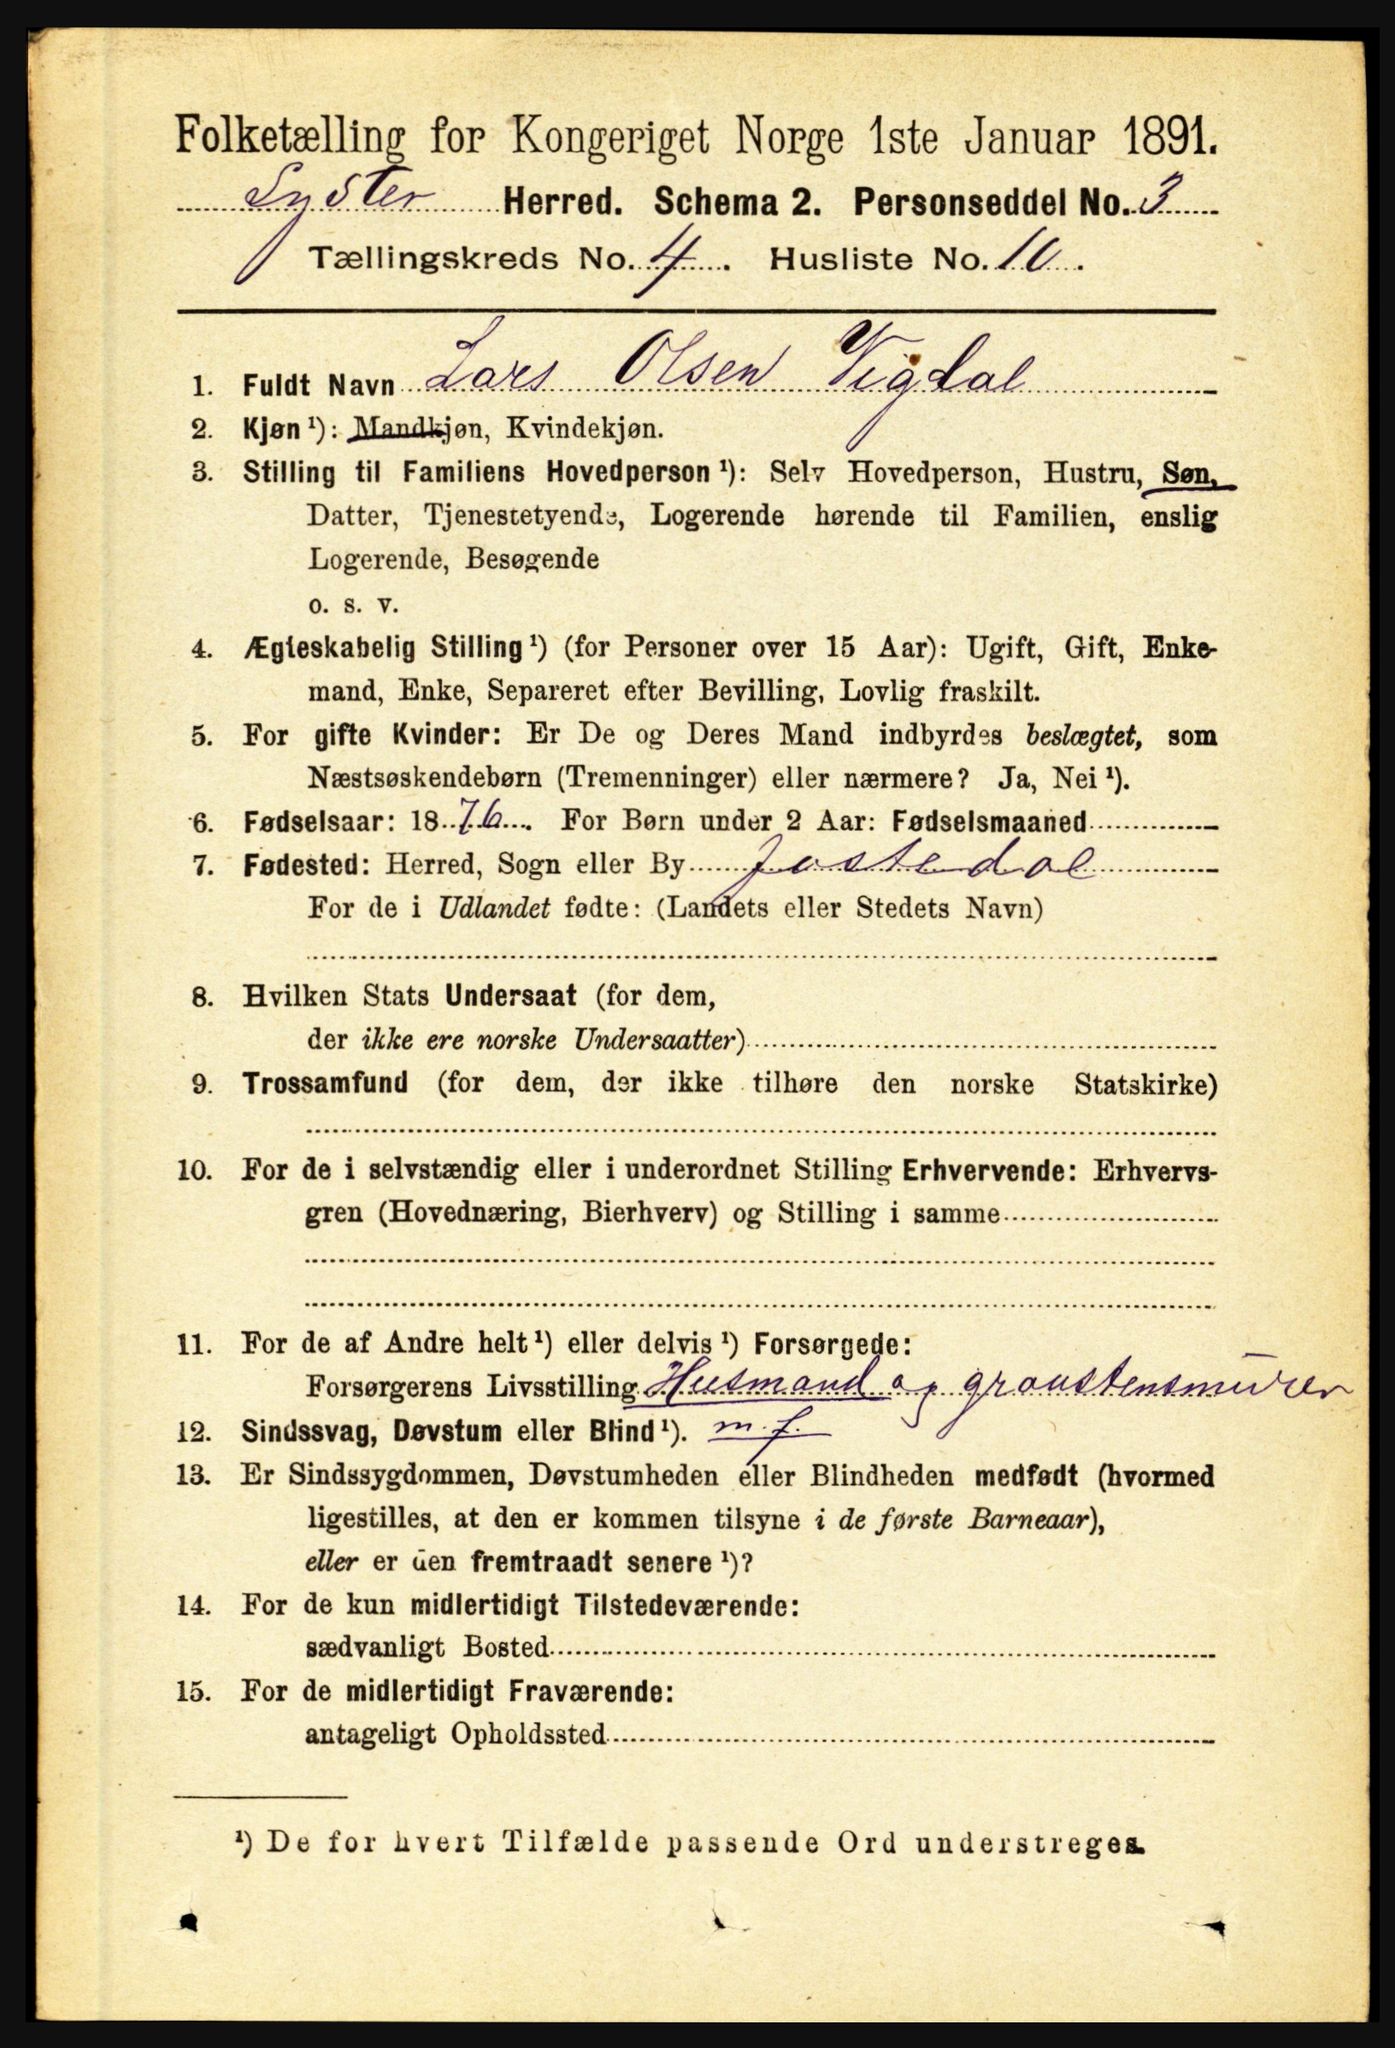 Folketælling for Kongeriget Norge 1ste Januar 1891.
Lyster Herred. Schema 2. Personseddel No. 3
Tællingskreds No. 4. Husliste No. 10.
1. Fuldt Navn Lars Olsen Vigdal
2. Kjøn ¹): Mandkjøn, Kvindekjøn.
3. Stilling til Familiens Hovedperson ¹): Selv Hovedperson, Hustru, Søn,
Datter, Tjenestetyende, Logerende hørende til Familien, enslig
Logerende, Besøgende
o. s. v.
4. Ægteskabelig Stilling ¹) (for Personer over 15 Aar): Ugift, Gift, Enke-
mand, Enke, Separeret efter Bevilling, Lovlig fraskilt.
5. For gifte Kvinder: Er De og Deres Mand indbyrdes beslægtet, som
Næstsøskendebørn (Tremenninger) eller nærmere? Ja, Nei ¹).
6. Fødselsaar: 1876. For Børn under 2 Aar: Fødselsmaaned
7. Fødested: Herred, Sogn eller By Jostedal
For de i Udlandet fødte: (Landets eller Stedets Navn)
8. Hvilken Stats Undersaat (for dem,
der ikke ere norske Undersaatter)
9. Trossamfund (for dem, der ikke tilhøre den norske Statskirke)
10. For de i selvstændig eller i underordnet Stilling Erhvervende: Erhvervs-
gren (Hovednæring, Bierhverv) og Stilling i samme
11. For de af Andre helt ¹) eller delvis ¹) Forsørgede:
Forsørgerens Livsstilling Husmand og graustensmurer
12. Sindssvag, Døvstum eller Blind ¹). m. f.
13. Er Sindssygdommen, Døvstumheden eller Blindheden medfødt (hvormed
ligestilles, at den er kommen tilsyne i de første Barneaar),
eller er den fremtraadt senere ¹)?
14. For de kun midlertidigt Tilstedeværende:
sædvanligt Bosted
15. For de midlertidigt Fraværende:
antageligt Opholdssted
¹) De for hvert Tilfælde passende Ord understreges.